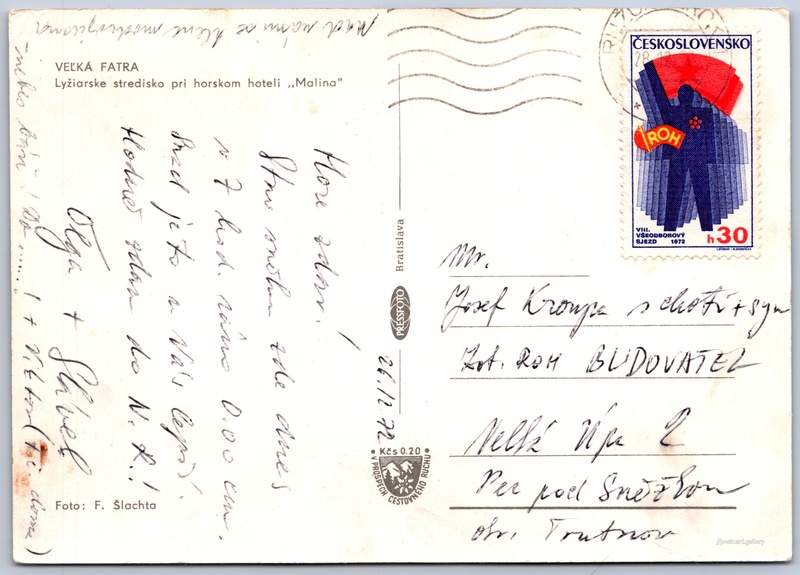 VEĽKÁ FATRA
Lyžiarske stredisko pri horskom hoteli „Malina"
nad námi se klene modrojasná
nebes báň!
Hore zdar!
Stav sněhu zde dnes
v 7 hod. ráno 0.00 cm.
Snad je to u Vás lepší.
Hodně zdaru do N. R.!
Olga + Slávek
+ Viktor (t.č. doma)
Foto: F. Šlachta
Bratislava
PRESSFOTO
26.12.72
Kčs 0.20
V PROSPECH CESTOVNÉHO RUCHU
ČESKOSLOVENSKO
ROH
VIII.
VŠEODBOROVÝ
SJEZD 1972
h30
Mr.
Josef Kroupa s chotí + syn
Zot. ROH BUDOVATEL
Velká Úpa 2
Pec pod Sněžkou
okr. Trutnov
//postcard.gallery